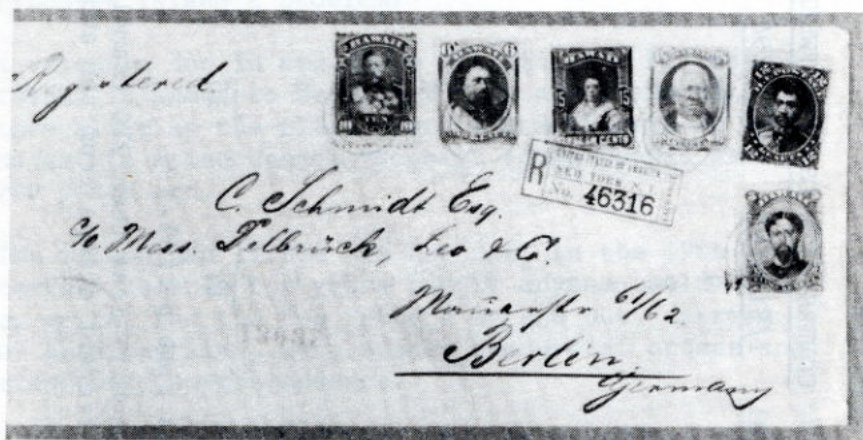 Registered.
HAWAII
TEN
10 10
HAWAII
HAWAII
R
UNITED STATES OF AMERICA
NEW YORK N.Y.
No. 46316
C. Schmidt Esq.
c/o. Mess. Delbrück, Leo & Co.
Mauerstr 61/62.
Berlin.
Germany